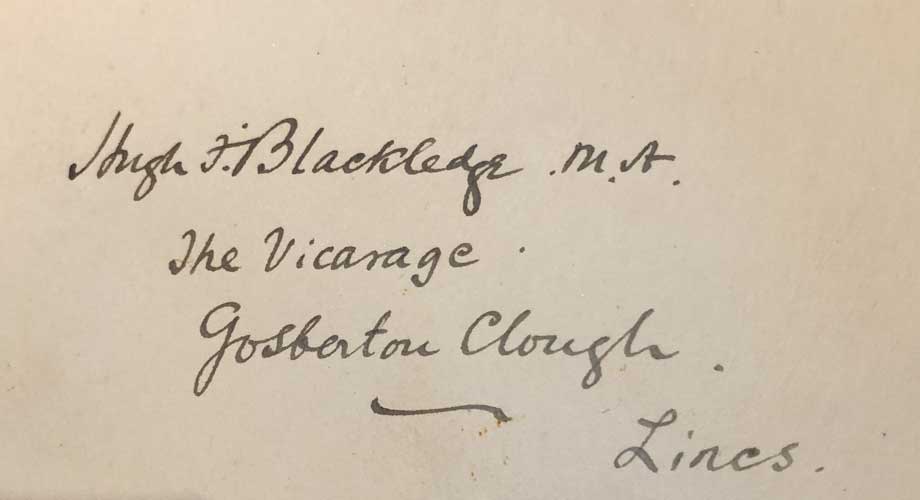 Hugh F. Blackledge M.A.
The Vicarage.
Gosberton Clough.
Lincs.